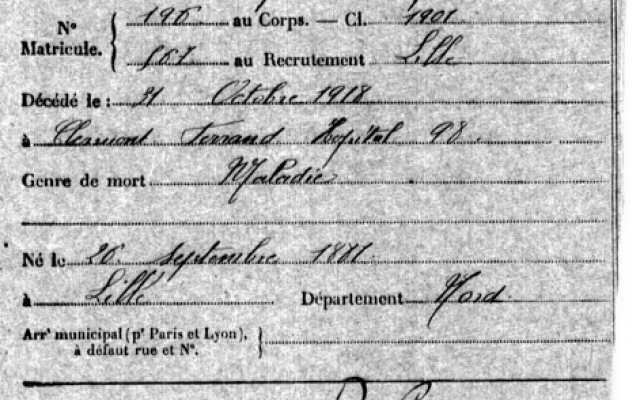 N° Matricule. 196 au Corps. — Cl. 1901
567 au Recrutement Lille
Décédé le : 31 Octobre 1918
à Clermont Ferrand Hopital 98
Genre de mort Maladie
Né le 26 septembre 1881
à Lille Département Nord
Arrt municipal (pr Paris et Lyon),
à défaut rue et N°.